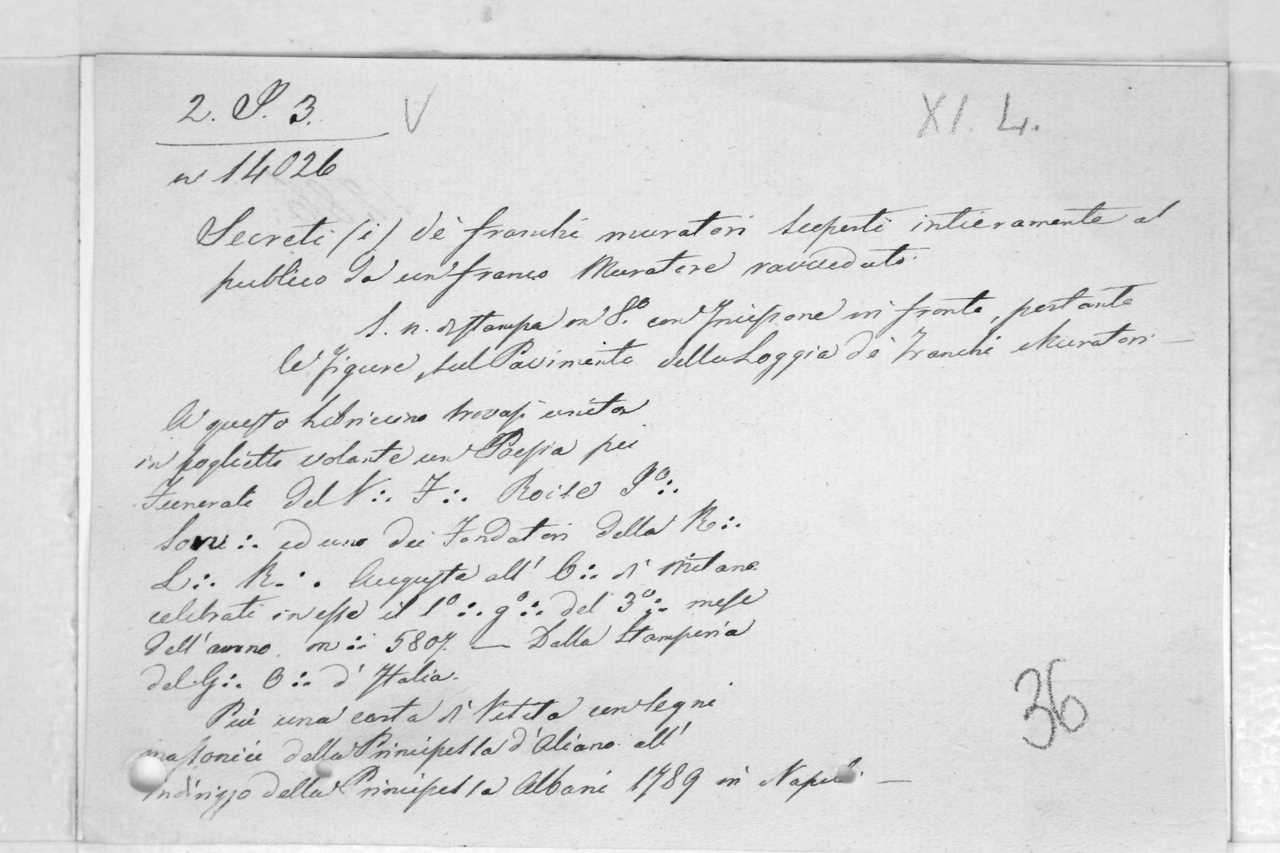 2. P. 3. V XI. L.
n 14026
Secreti (i) de' franchi muratori scoperti intieramente al
publico da un' franco Muratore ravveduto.
S. n. di stampa in 8.° con Incisione in fronte, portante
le figure, sul Pavimento della Loggia de' Franchi Muratori —
A questo libriccino trovasi unita
in foglietto volante un Poesia pei
Funerali del V∴ F∴ P°∴
Sorv∴ ed uno dei Fondatori della R∴
L∴ R∴ Augusta all' O∴ di Milano
celebrati in esse il 1°∴ g°∴ del 3°∴ mese
dell' anno m∴ 5807. — Dalla Stamperia
del G∴ O∴ d' Italia.
Più una carta di Visita con segni
massonici della Principessa d' Aliano all'
indirizzo della Principessa Albani 1789 in Napoli. —
36